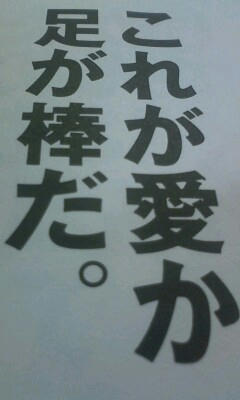 これが愛か
足が棒だ。